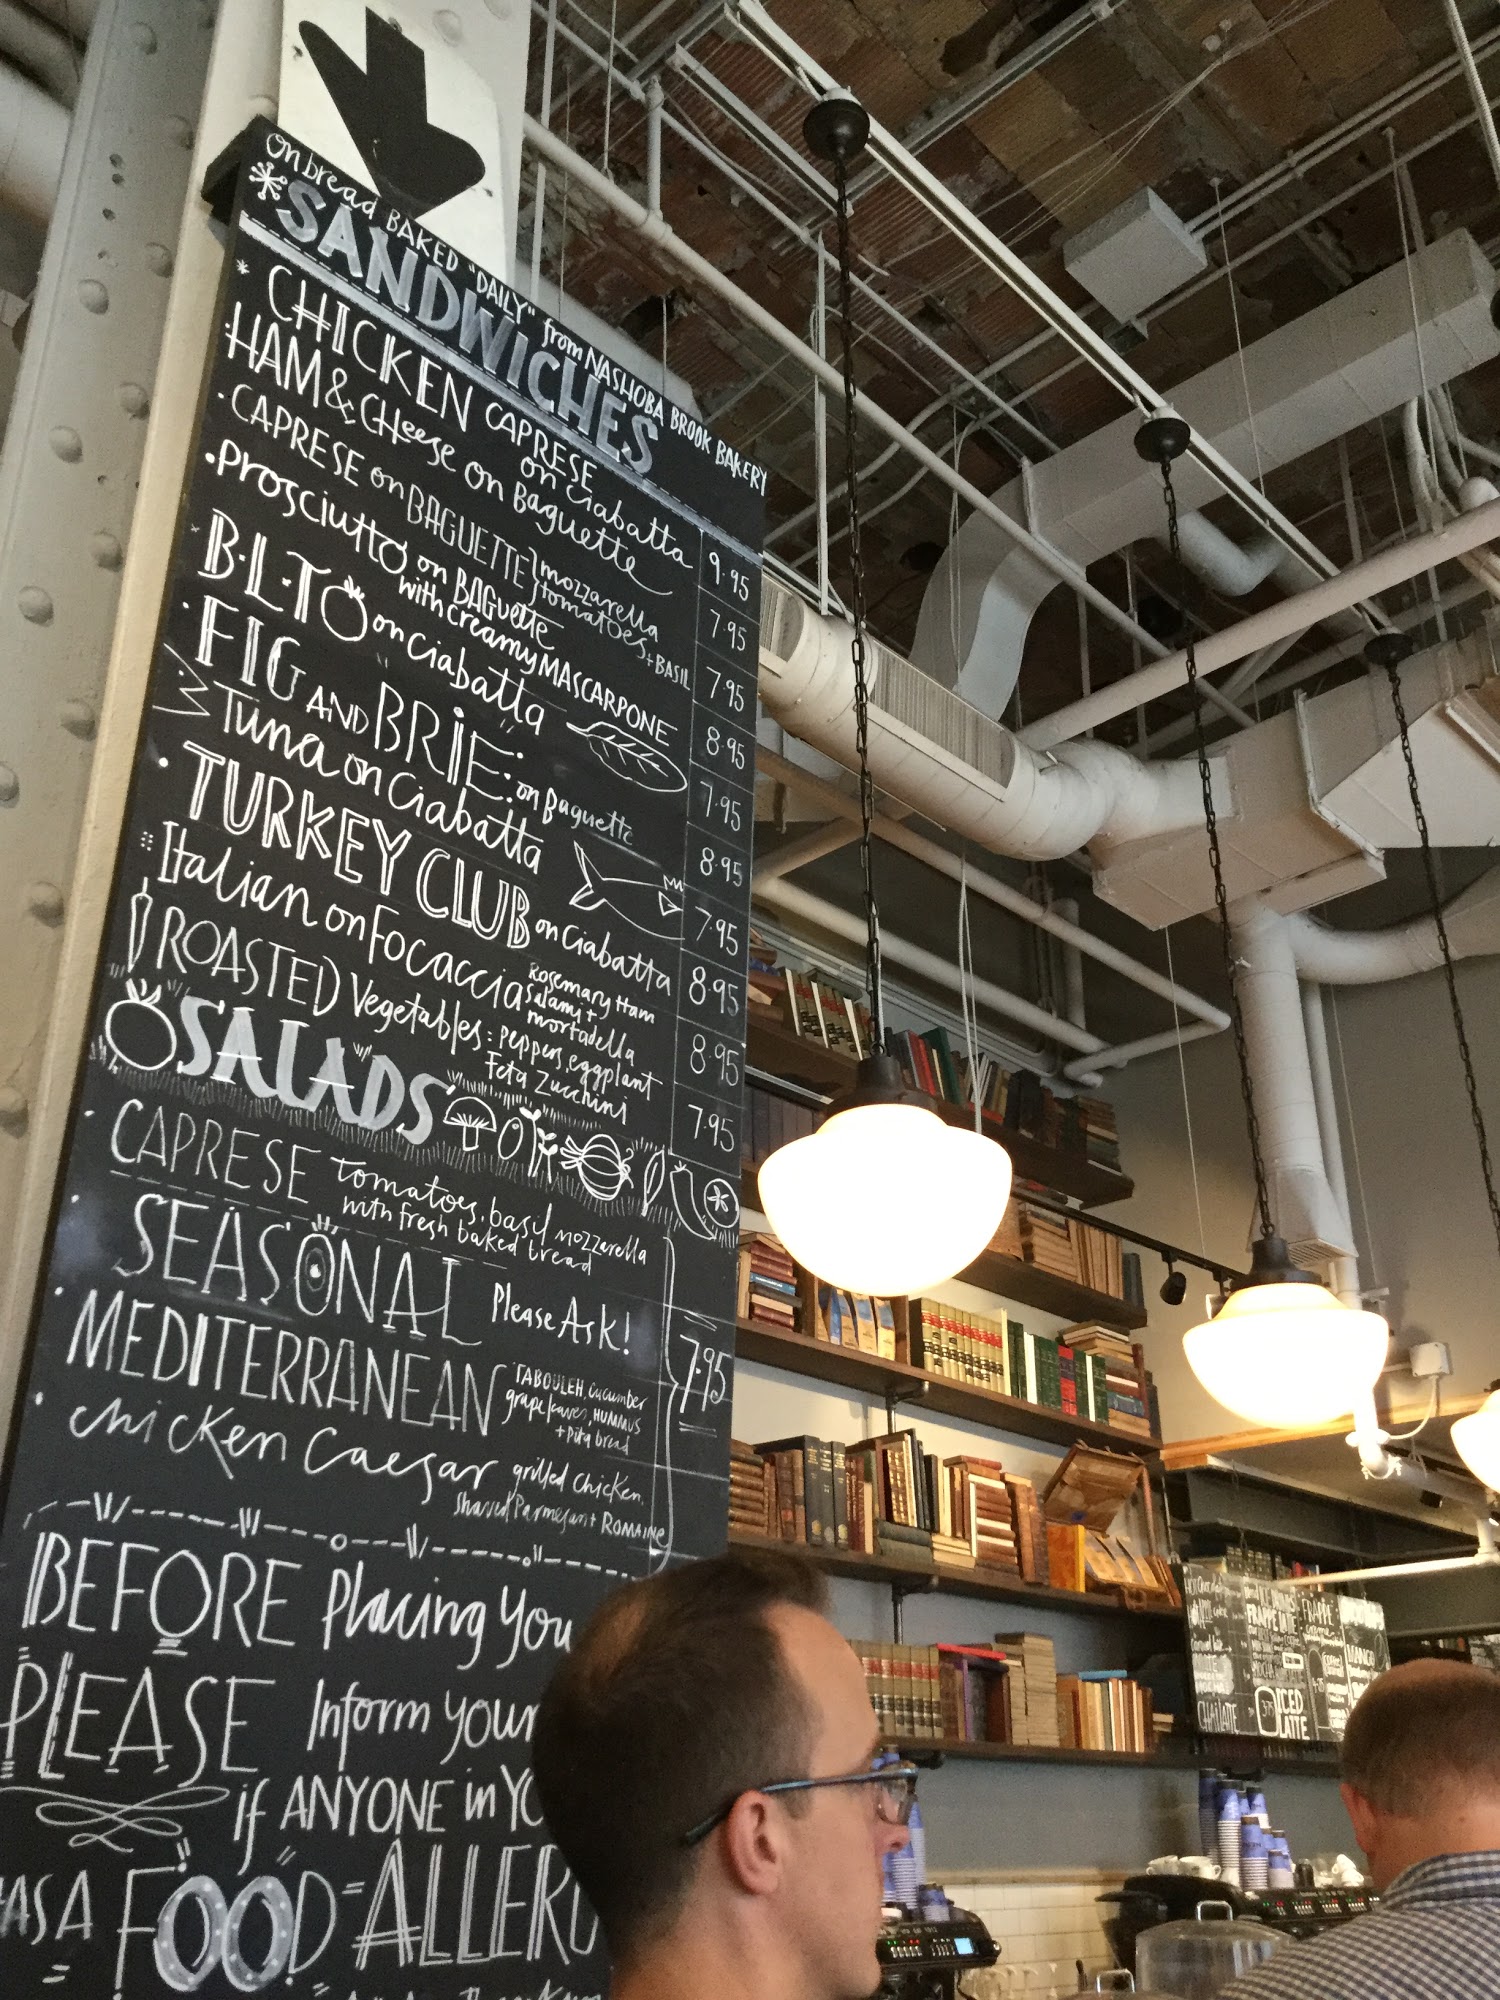 on bread BAKED "DAILY" from NASHOBA BROOK BAKERY
SANDWICHES
CHICKEN CAPRESE on ciabatta 9.95
HAM & CHEESE on Baguette 7.95
CAPRESE on BAGUETTE mozzarella tomatoes + BASIL 7.95
PROSCIUTTO on BAGUETTE with creamy MASCARPONE 8.95
B.L.T on ciabatta 7.95
FIG AND BRIE: on Baguette 8.95
Tuna on Ciabatta 7.95
TURKEY CLUB on ciabatta 8.95
Italian on Focaccia Rosemary Ham Salami + mortadella 8.95
ROASTED Vegetables: peppers, eggplant Feta Zucchini 7.95
SALADS
CAPRESE tomatoes, basil mozzarella
with fresh baked bread
SEASONAL Please Ask! 7.95
MEDITERRANEAN TABOULEH, cucumber
grape leaves, HUMMUS
+ pita bread
chicken caesar grilled chicken,
Shaved Parmesan + ROMAINE
BEFORE Placing You
PLEASE Inform your
if ANYONE in YO
HAS A FOOD ALLERG
FRAPPE
MANGO
ICED
LATTE
CHAI LATTE
3.75